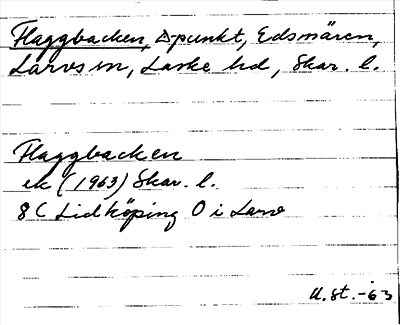 Flaggbacken, △-punkt, Edsmären,
Larvs sn, Laske hd, Skar. l.
Flaggbacken
ek (1963) Skar. l.
8C Lidköping O i Larv
U.St. -63